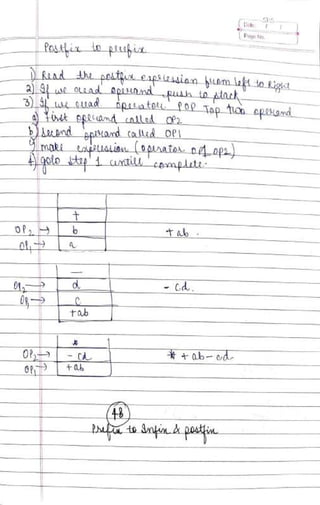 Date: / /
Page No.
Postfix to prefix
1) Read the postfix expression from left to Right
2) If we read operand, push to stack
3) If we read operator POP Top two operand
a) First operand called OP2
b) Second operand called OP1
c) make expression (operator OP1 OP2)
4) goto step 1 until complete.
+
OP2 → b + ab.
OP1 → a
-
OP2 → d - cd.
OP1 → c
+ab
*
OP2 → - cd * + ab - cd
OP1 → +ab
48
Prefix to Infix & postfix